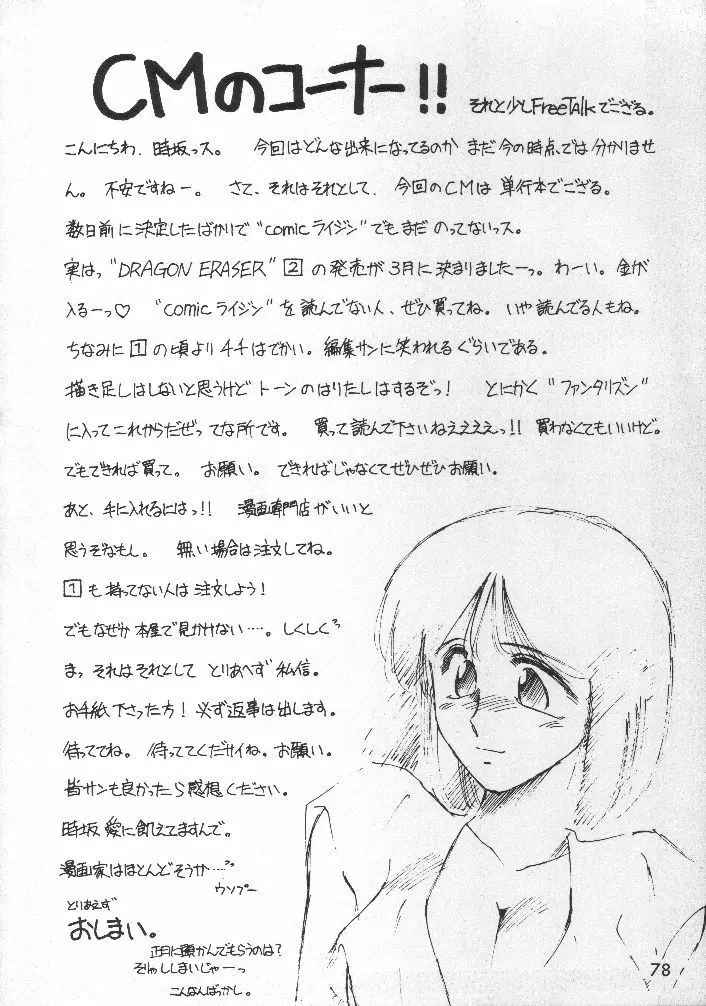 CMのコーナー!!
それと少しFreeTalkでござる。
こんにちわ、時坂っス。 今回はどんな出来になってるのか まだ今の時点では分かりませ
ん。 不安ですねー。 さて、それはそれとして、今回のCMは 単行本でござる。
数日前に決定したばかりで“comicライジン”でもまだ のってないっス。
実はっ“DRAGON ERASER”2 の発売が3月に決まりましたーっ。わーい。金が
入るーっ♡ “comicライジン”を読んでない人、ぜひ買ってね。いや読んでる人もね。
ちなみに1の頃よりチチはでかい。編集サンに笑われるぐらいである。
描き足しはしないと思うけどトーンのはりたしはするぞっ! とにかく“ファンタリズン”
に入ってこれからだぜってな所です。 買って読んで下さいねええええっ!! 買わなくてもいいけど。
でもできれば買って。 お願い。 できればじゃなくてぜひぜひお願い。
あと、手に入れるにはっ!! 漫画専門店がいいと
思うぞなもし。 無い場合は注文してね。
1も持ってない人は注文しよう!
でもなぜか本屋で見かけない…。しくしく
まっ それはそれとして とりあへず私信。
お手紙下さった方! 必ず返事は出します。
待っててね。 待っててくだサイね。お願い。
皆サンも良かったら感想ください。
時坂 愛に飢えてますんで。
漫画家はほとんどそうか…
ウソプー
とりあえず
おしまい。
正月に頭かんでもらうのは?
そりゅししまいじゃーっ
こんなんばっかし。
78